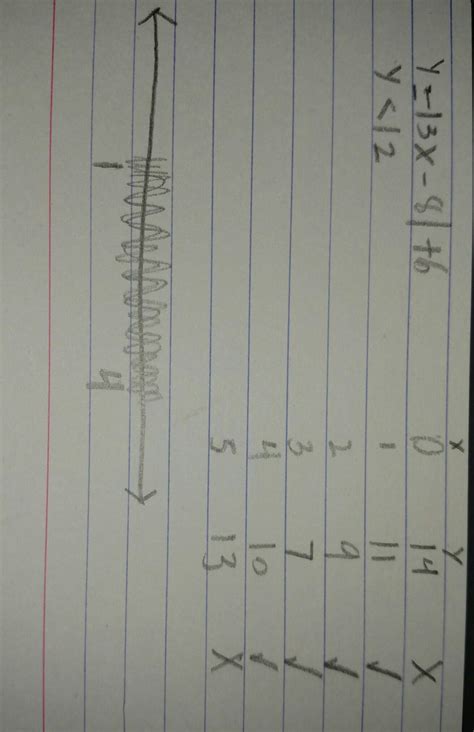 x y
y = |3x - 8| + 6 0 14 X
y < 12 1 11 ✓
2 9 ✓
3 7 ✓
4 10 ✓
5 13 X
1 4